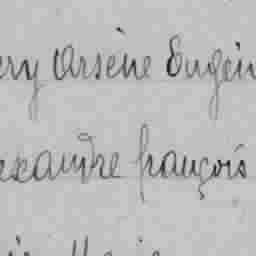 ery Arsène Eugèn
exandre françois